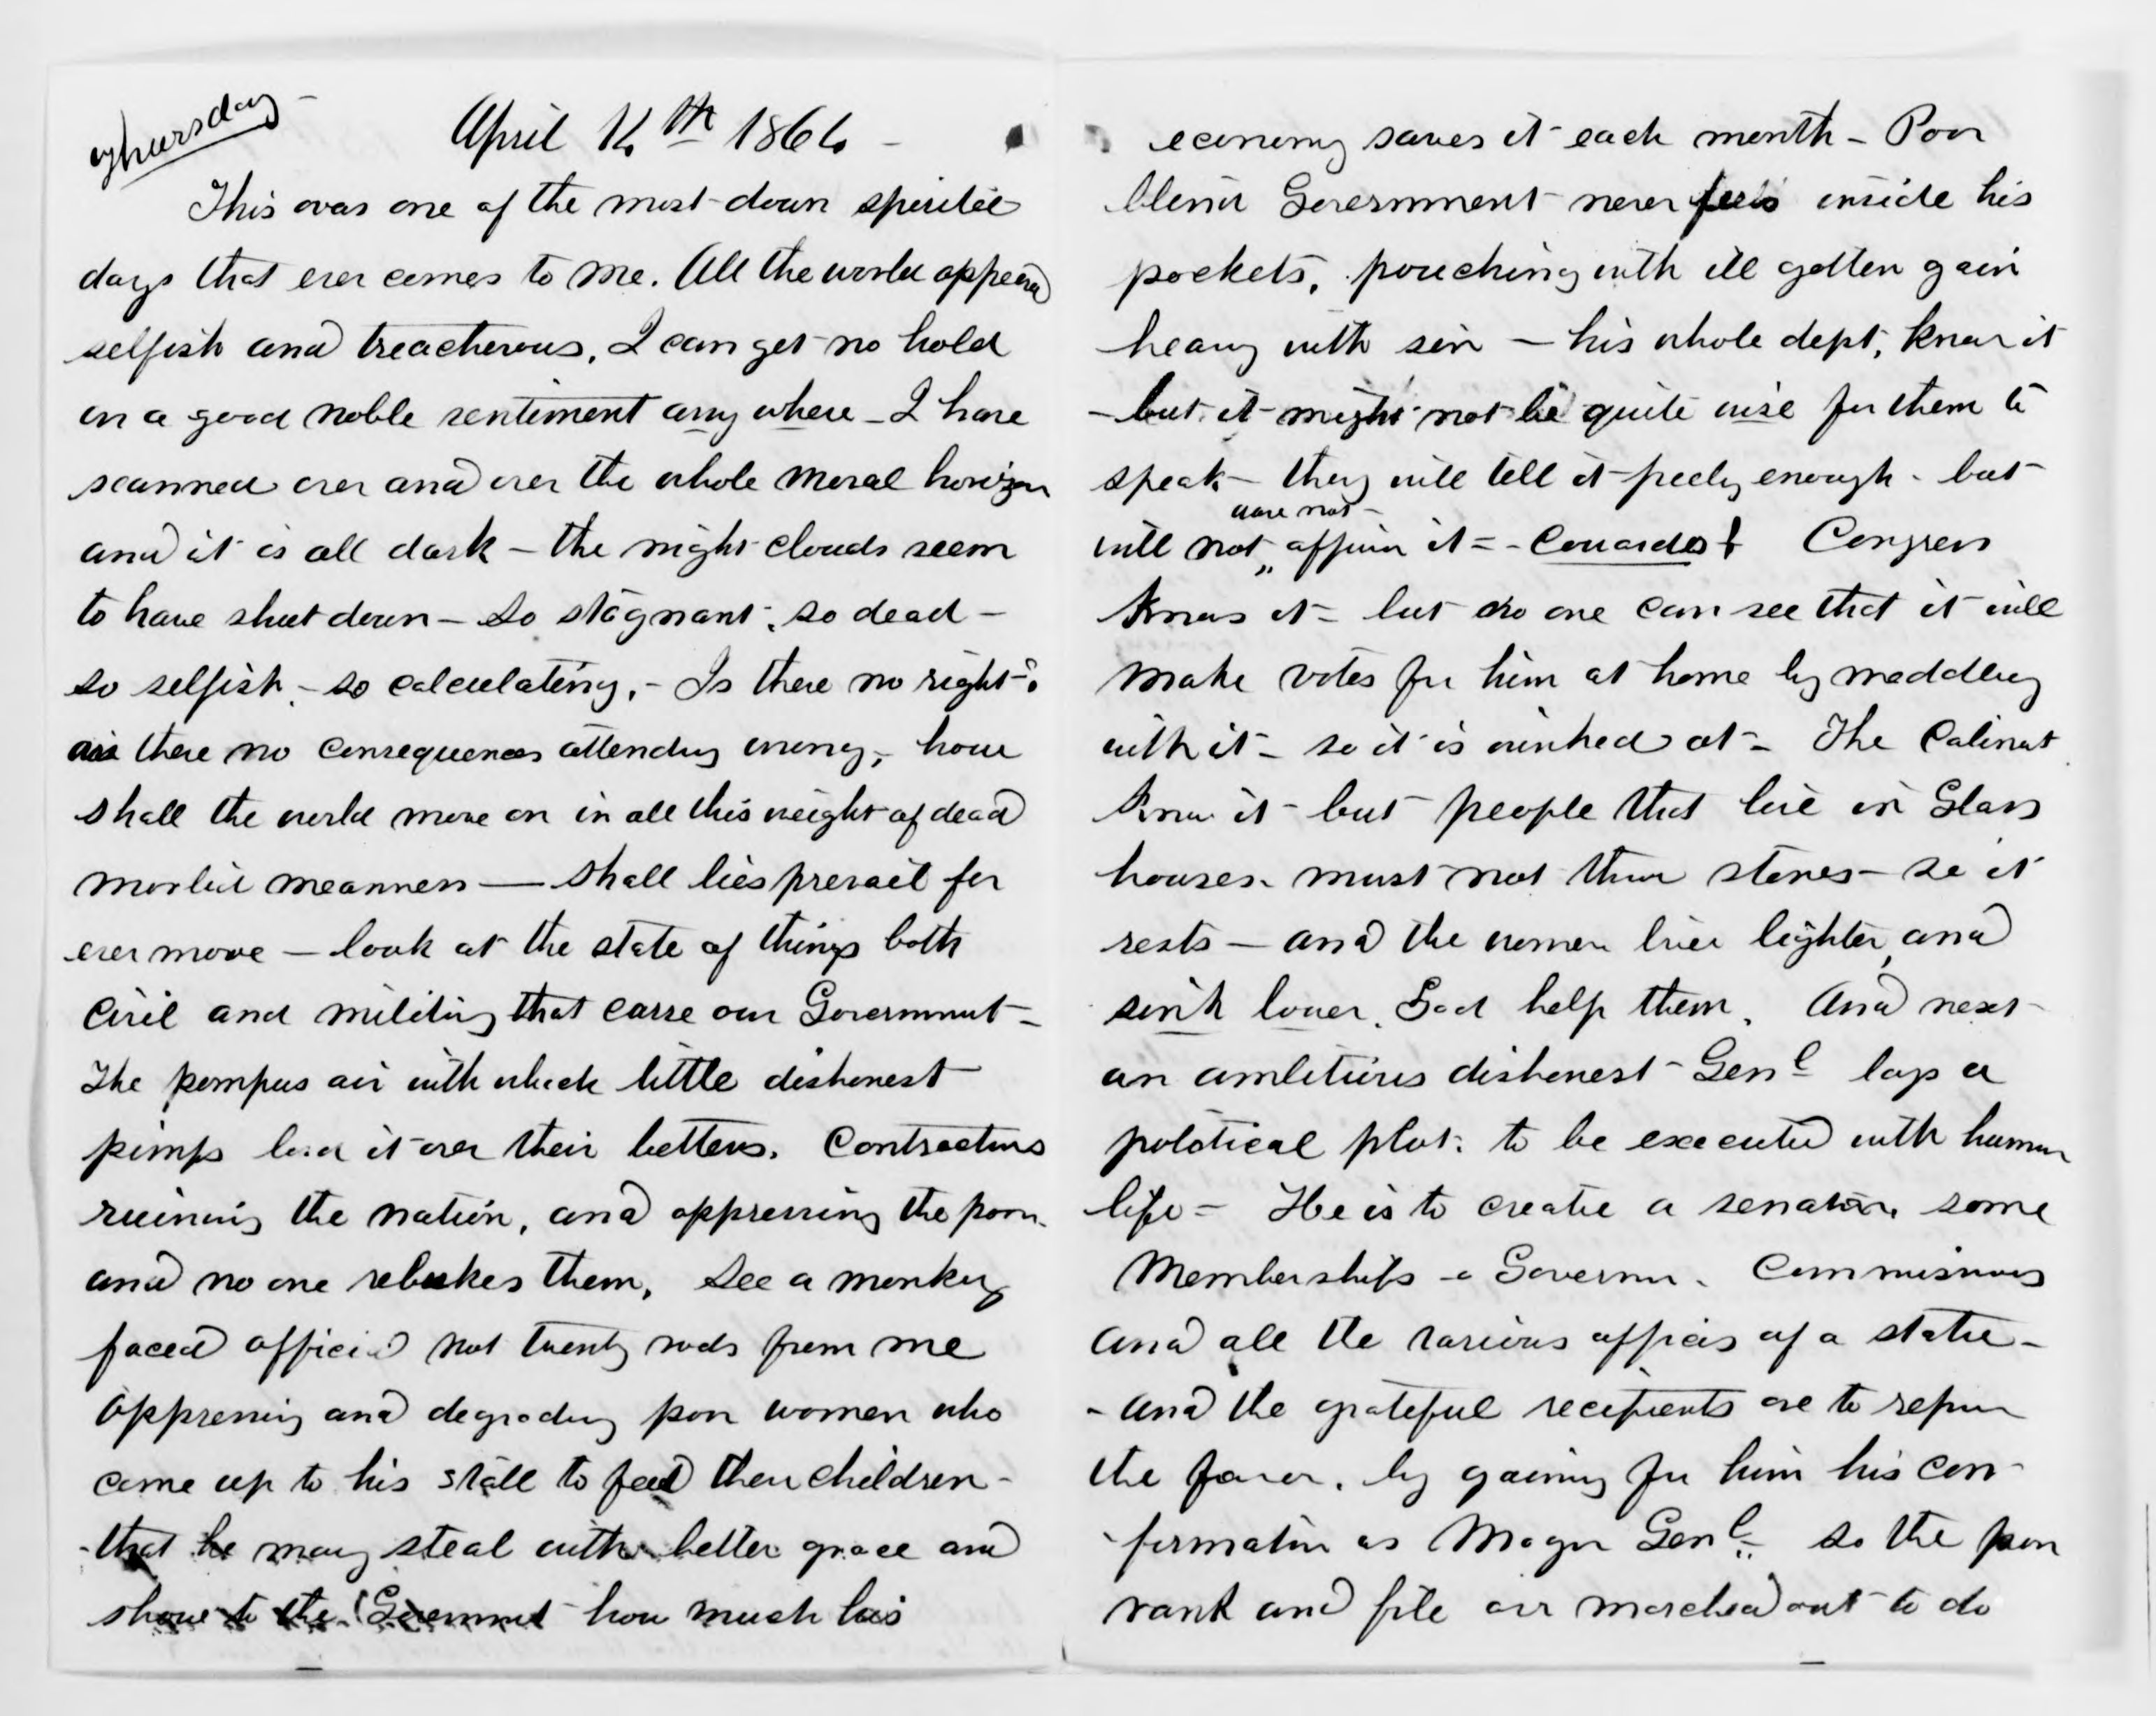 Thursday - April 14th 1864 -
This was one of the most down spirited
days that ever comes to me. All the world appeared
selfish and treacherous, I can get no hold
on a good noble sentiment any where - I have
scanned over and over the whole moral horizon
and it is all dark - the night clouds seem
to have shut down - So stagnant, so dead -
so selfish, - so calculating, - Is there no right?
are there no consequences attending wrong, how
shall the world move on in all this weight of dead
morbid meanness — shall lies prevail for
ever more — look at the state of things both
civil and military that curse our Government -
The pompus air with which little dishonest
pimps lord it over their betters. Contractors
ruining the nation, and oppressing the poor
and no one rebukes them, See a monkey
faced official not twenty rods from me
oppressing and degrading poor women who
come up to his stall to feed their children -
- that he may steal with better grace and
show to the Government how much his
economy saves it each month - Poor
blind Government never feels inside his
pockets, pouching with ill gotten gain
heavy with sin - his whole dept, know it
- but it might not be quite wise for them to
speak - they will tell it freely enough - but
dare not -
will not, affirm it = - Cowards! Congress
knows it - but no one can see that it will
make votes for him at home by meddling
with it - so it is winked at - The Cabinet
know it - but people that live in Glass
houses must not throw stones - so it
rests — and the women live lighter, and
sink lower, God help them. And next
an ambitious dishonest Genl lays a
political plot, to be executed with human
life = He is to create a senator, some
Memberships - a Governor, Commissions
and all the various offices of a state -
- and the grateful recipients are to repay
the favor, by gaining for him his con-
-firmation as Major Genl - so the poor
rank and file are marched out to do